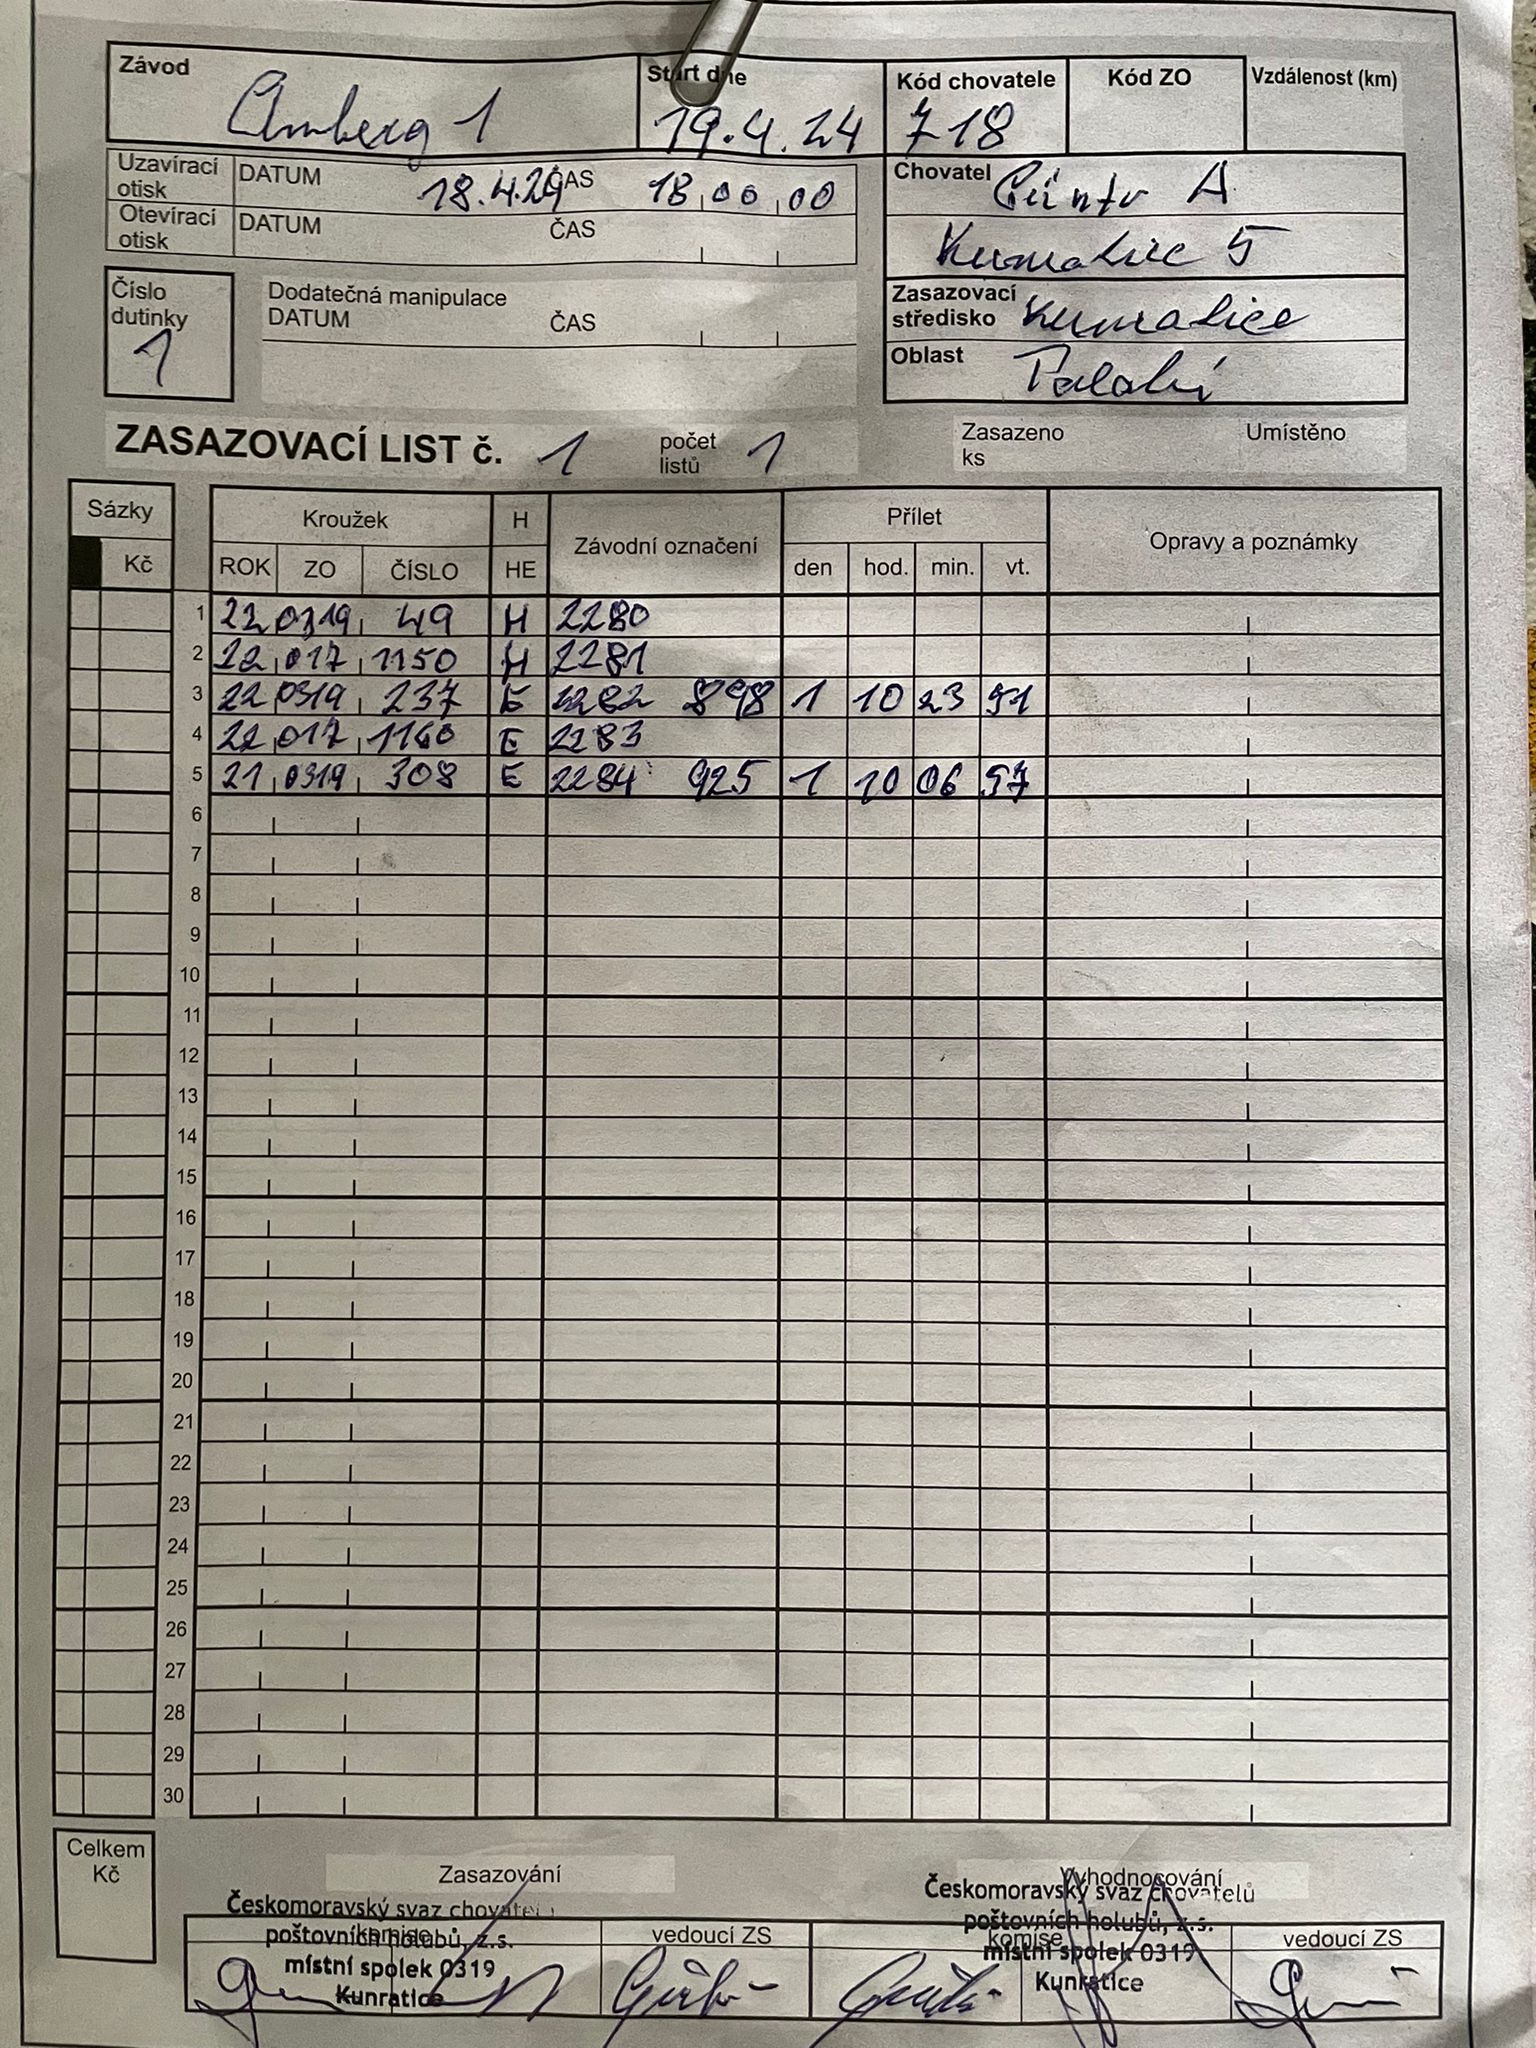 Závod
Start dne
Kód chovatele
Kód ZO
Vzdálenost (km)
Amberg 1
19.4.24
718
Uzavírací otisk DATUM 18.4.24 ČAS 18 00 00
Otevírací otisk DATUM ČAS
Chovatel A
5
Číslo dutinky
1
Dodatečná manipulace
DATUM ČAS
Zasazovací středisko
Oblast
ZASAZOVACÍ LIST č. 1 počet listů 1
Zasazeno ks
Umístěno
Sázky
Kč
Kroužek H Závodní označení Přílet Opravy a poznámky
ROK ZO ČÍSLO HE den hod. min. vt.
1 22 0319 49 H 2280
2 22 017 1150 H 2281
3 22 0319 237 E 2282 898 1 10 23 51
4 22 017 1160 E 2283
5 21 0319 308 E 2284 925 1 10 06 57
6
7
8
9
10
11
12
13
14
15
16
17
18
19
20
21
22
23
24
25
26
27
28
29
30
Celkem Kč
Zasazování
Vyhodnocování
Českomoravský svaz chovatelů
poštovních holubů, z.s.
místní spolek 0319
Kunratice
komise
vedoucí ZS
Českomoravský svaz chovatelů
poštovních holubů, z.s.
místní spolek 0319
Kunratice
komise
vedoucí ZS